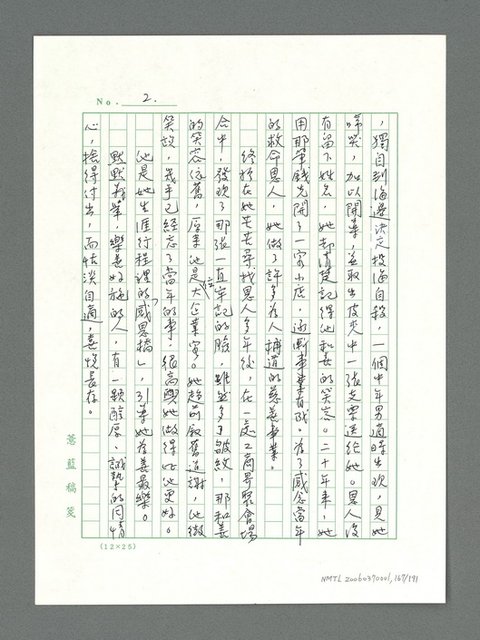 No. 2.
，獨自到海邊決定投海自殺，一個中年男適時出現，見她
啼哭，加以開導，並取出皮夾中一張支票送給她。恩人沒
有留下姓名，她却清楚記得他和善的笑容。二十年來，她
用那筆錢先開了一家小店，逐漸事業有成。為了感念當年
的救命恩人，她做了許多為人稱道的慈善事業。
終於在她茫茫尋找恩人多年後，在一處工商界聚會場
合中，發現了那張一直牢記的臉，雖然多了皺紋，那和善
的笑容依舊，原來他是位大企業家。她趨前敘舊道謝，他微
笑說，幾乎已經忘了當年的事，很高興她做得比他更好。
他是她生涯行程裡的「感恩橋」，引導她為善最樂。
默默耕耘，樂善好施的人，有一顆醇厚、誠摯的同情
心，捨得付出，而恬淡自適，喜悅長存。
薏藍稿箋
(12×25)
NMTL 20060370001, 167/191